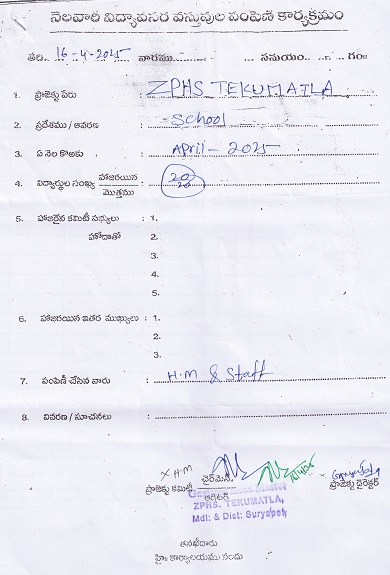 నెలవారి విద్యావసర వస్తువుల పంపిణి కార్యక్రమం
తేది. 16-4-2025 వారము సమయం గం॥
1. ప్రాజెక్టు పేరు : ZPHS TEKUMATLA
2. ప్రదేశము / ఆవరణ : School
3. ఏ నెల కొఱకు : April - 2025
4. విద్యార్థుల సంఖ్య హాజరయిన / మొత్తము : 20/20
5. హాజరైన కమిటీ సభ్యులు : 1.
హోదాతో 2.
3.
4.
5.
6. హాజరయిన ఇతర ముఖ్యులు : 1.
2.
3.
7. పంపిణీ చేసిన వారు : H.M & Staff
8. వివరణ / సూచనలు :
X H.M
ప్రాజెక్టు కమిటీ చైర్మెన్ ప్రాజెక్టు డైరెక్టర్
ZPHS. TEKUMATLA,
Mdl: & Dist: Suryapet
తనఖీదారు
హై॥ కార్యాలయము నందు